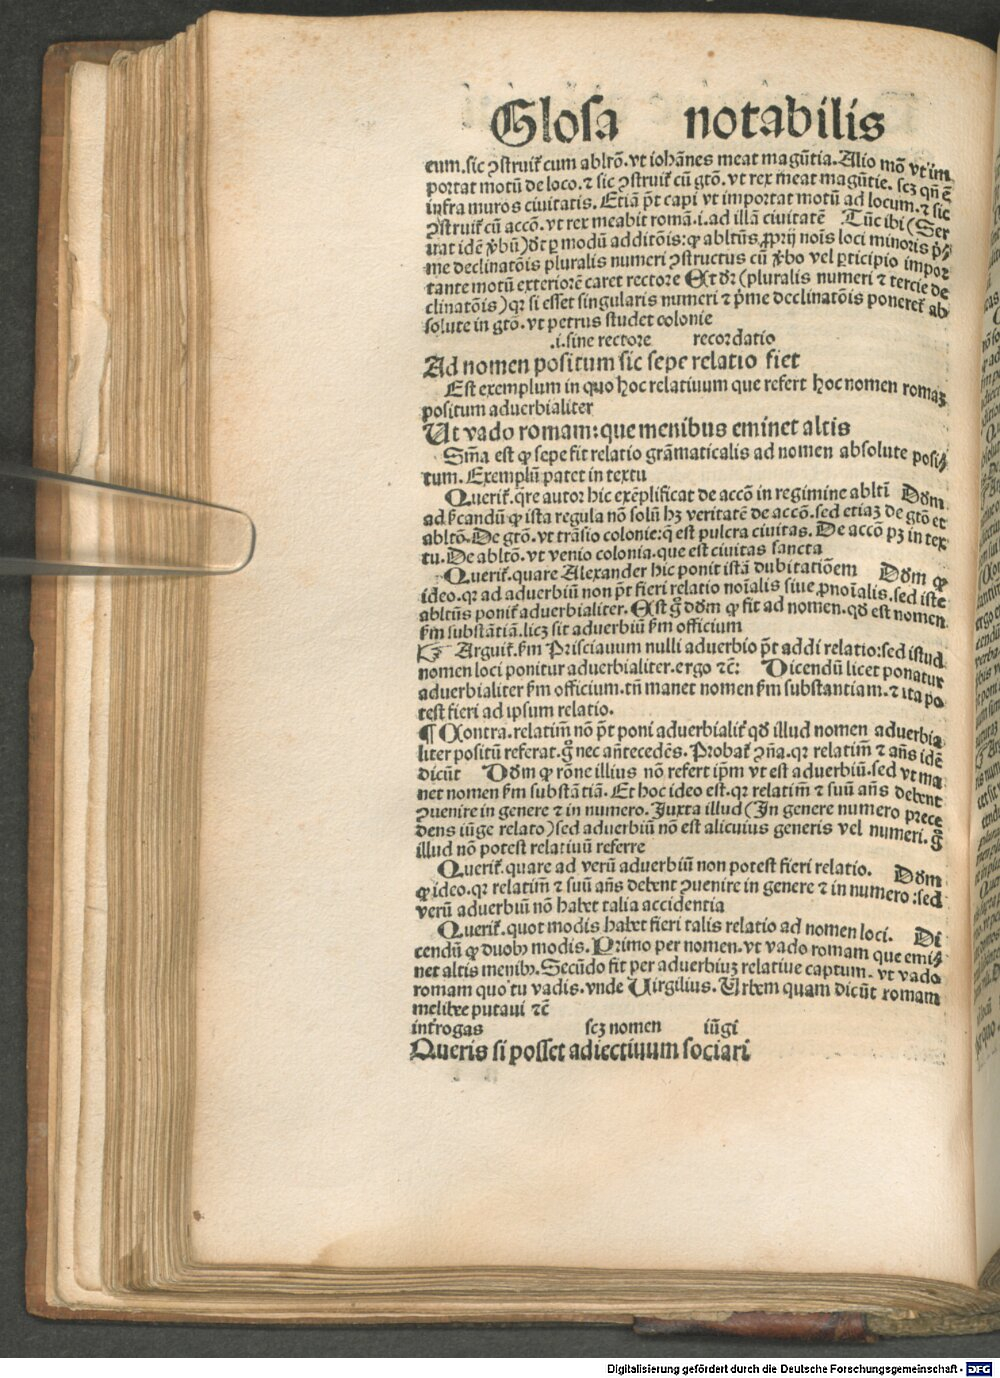 Glosa notabilis
eum.sic ꝯstruit᷑ cum abltō.vt iohānes meat magūtia.Alio mō vt im
portat motū de loco.⁊ sic ꝯstruit᷑ cū gtō.vt rex meat magūtie. scꝫ qn̄ ē
infra muros ciuitatis. Etiā pōt capi vt importat motū ad locum.⁊ sic
ꝯstruit᷑ cū accō.vt rex meabit romā.i.ad illā ciuitatē Tūc ibi (Ser
uat idē v̓bū) dt̄ ꝑ modū additōis:ꝙ abltūs ꝓprij noīs loci minoris p̓⸗
me declinatōis pluralis numeri ꝯstructus cū v̓bo vel ꝑticipio impor
tante motū exteriorē caret rectore Et dr̄ (pluralis numeri ⁊ tercie de
clinatōis) qꝛ si esset singularis numeri ⁊ p̓me declinatōis poneret᷑ ab
solute in gtō.vt petrus studet colonie
.i.sine rectore recordatio
Ad nomen positum sic sepe relatio fiet
Est exemplum in quo hoc relatiuum que refert hoc nomen romaꝫ
positum aduerbialiter
Ut vado romam:que menibus eminet altis
Sm̄a est ꝙ sepe fit relatio grāmaticalis ad nomen absolute posi⸗
tum. Exemplū patet in textu
Querit᷑.qre autor hic exēplificat de accō in regimine abltī Dōm
ad ẜcandū ꝙ ista regula nō solū hꝫ veritatē de accō.sed etiaꝫ de gtō et
abltō.De gtō.vt trāsio colonie:q̄ est pulcra ciuitas. De accō pꝫ in tex
tu.De abltō.vt venio colonia.que est ciuitas sancta
Querit᷑.quare Alexander hic ponit istā dubitatiōem Dōm ꝙ
ideo.qꝛ ad aduerbiū non pōt fieri relatio noīalis siue ꝓnoīalis.sed iste
abltūs ponit᷑ aduerbialiter. Est gͦ dōm ꝙ fit ad nomen.qd̄ est nomen
ẜm substātiā.licꝫ sit aduerbiū ẜm officium
☞ Arguit᷑.ẜm Prisciauum nulli aduerbio pōt addi relatio:sed istud
nomen loci ponitur aduerbialiter.ergo ⁊c̄: Dicendū licet ponatur
aduerbialiter ẜm officium.tn̄ manet nomen ẜm substantiam.⁊ ita po
test fieri ad ipsum relatio.
¶ Contra.relatiuū nō pōt poni aduerbialit᷑ qd̄ illud nomen aduerbia
liter positū referat.gͦ nec añtecedēs. Probat᷑ ꝯn̄a.qꝛ relatiuū ⁊ an̄s idē
dicūt Dōm ꝙ rōne illius nō refert ip̄m vt est aduerbiū.sed vt ma
net nomen ẜm substātiā. Et hoc ideo est.qꝛ relatiuū ⁊ suū an̄s debent
ꝯuenire in genere ⁊ in numero. Juxta illud (In genere numero prece
dens iūge relato) sed aduerbiū nō est alicuius generis vel numeri. gͦ
illud nō potest relatiuū referre
Querit᷑.quare ad verū aduerbiū non potest fieri relatio. Dōm
ꝙ ideo.qꝛ relatiuū ⁊ suū an̄s debent ꝯuenire in genere ⁊ in numero:sed
verū aduerbiū nō habet talia accidentia
Querit᷑.quot modis habet fieri talis relatio ad nomen loci. Di
cendū ꝙ duobꝫ modis. Primo per nomen.vt vado romam que emi⸗
net altis menibꝫ. Secūdo fit per aduerbiuꝫ relatiue captum. vt vado
romam quo tu vadis.vnde Uirgilius. Urbem quam dicūt romam
melibee putaui ⁊c̄
int̓rogas scꝫ nomen iūgi
Queris si posset adiectiuum sociari
Digitalisierung gefördert durch die Deutsche Forschungsgemeinschaft - DFG